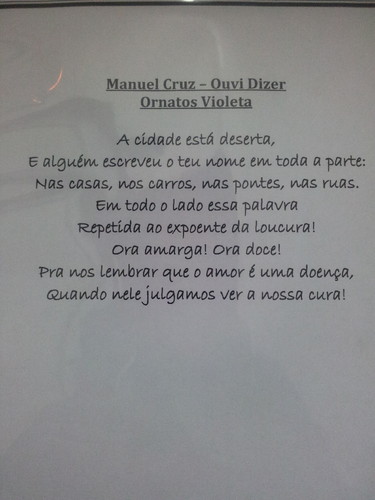 Manuel Cruz – Ouvi Dizer
Ornatos Violeta
A cidade está deserta,
E alguém escreveu o teu nome em toda a parte:
Nas casas, nos carros, nas pontes, nas ruas.
Em todo o lado essa palavra
Repetida ao expoente da loucura!
Ora amarga! Ora doce!
Pra nos lembrar que o amor é uma doença,
Quando nele julgamos ver a nossa cura!